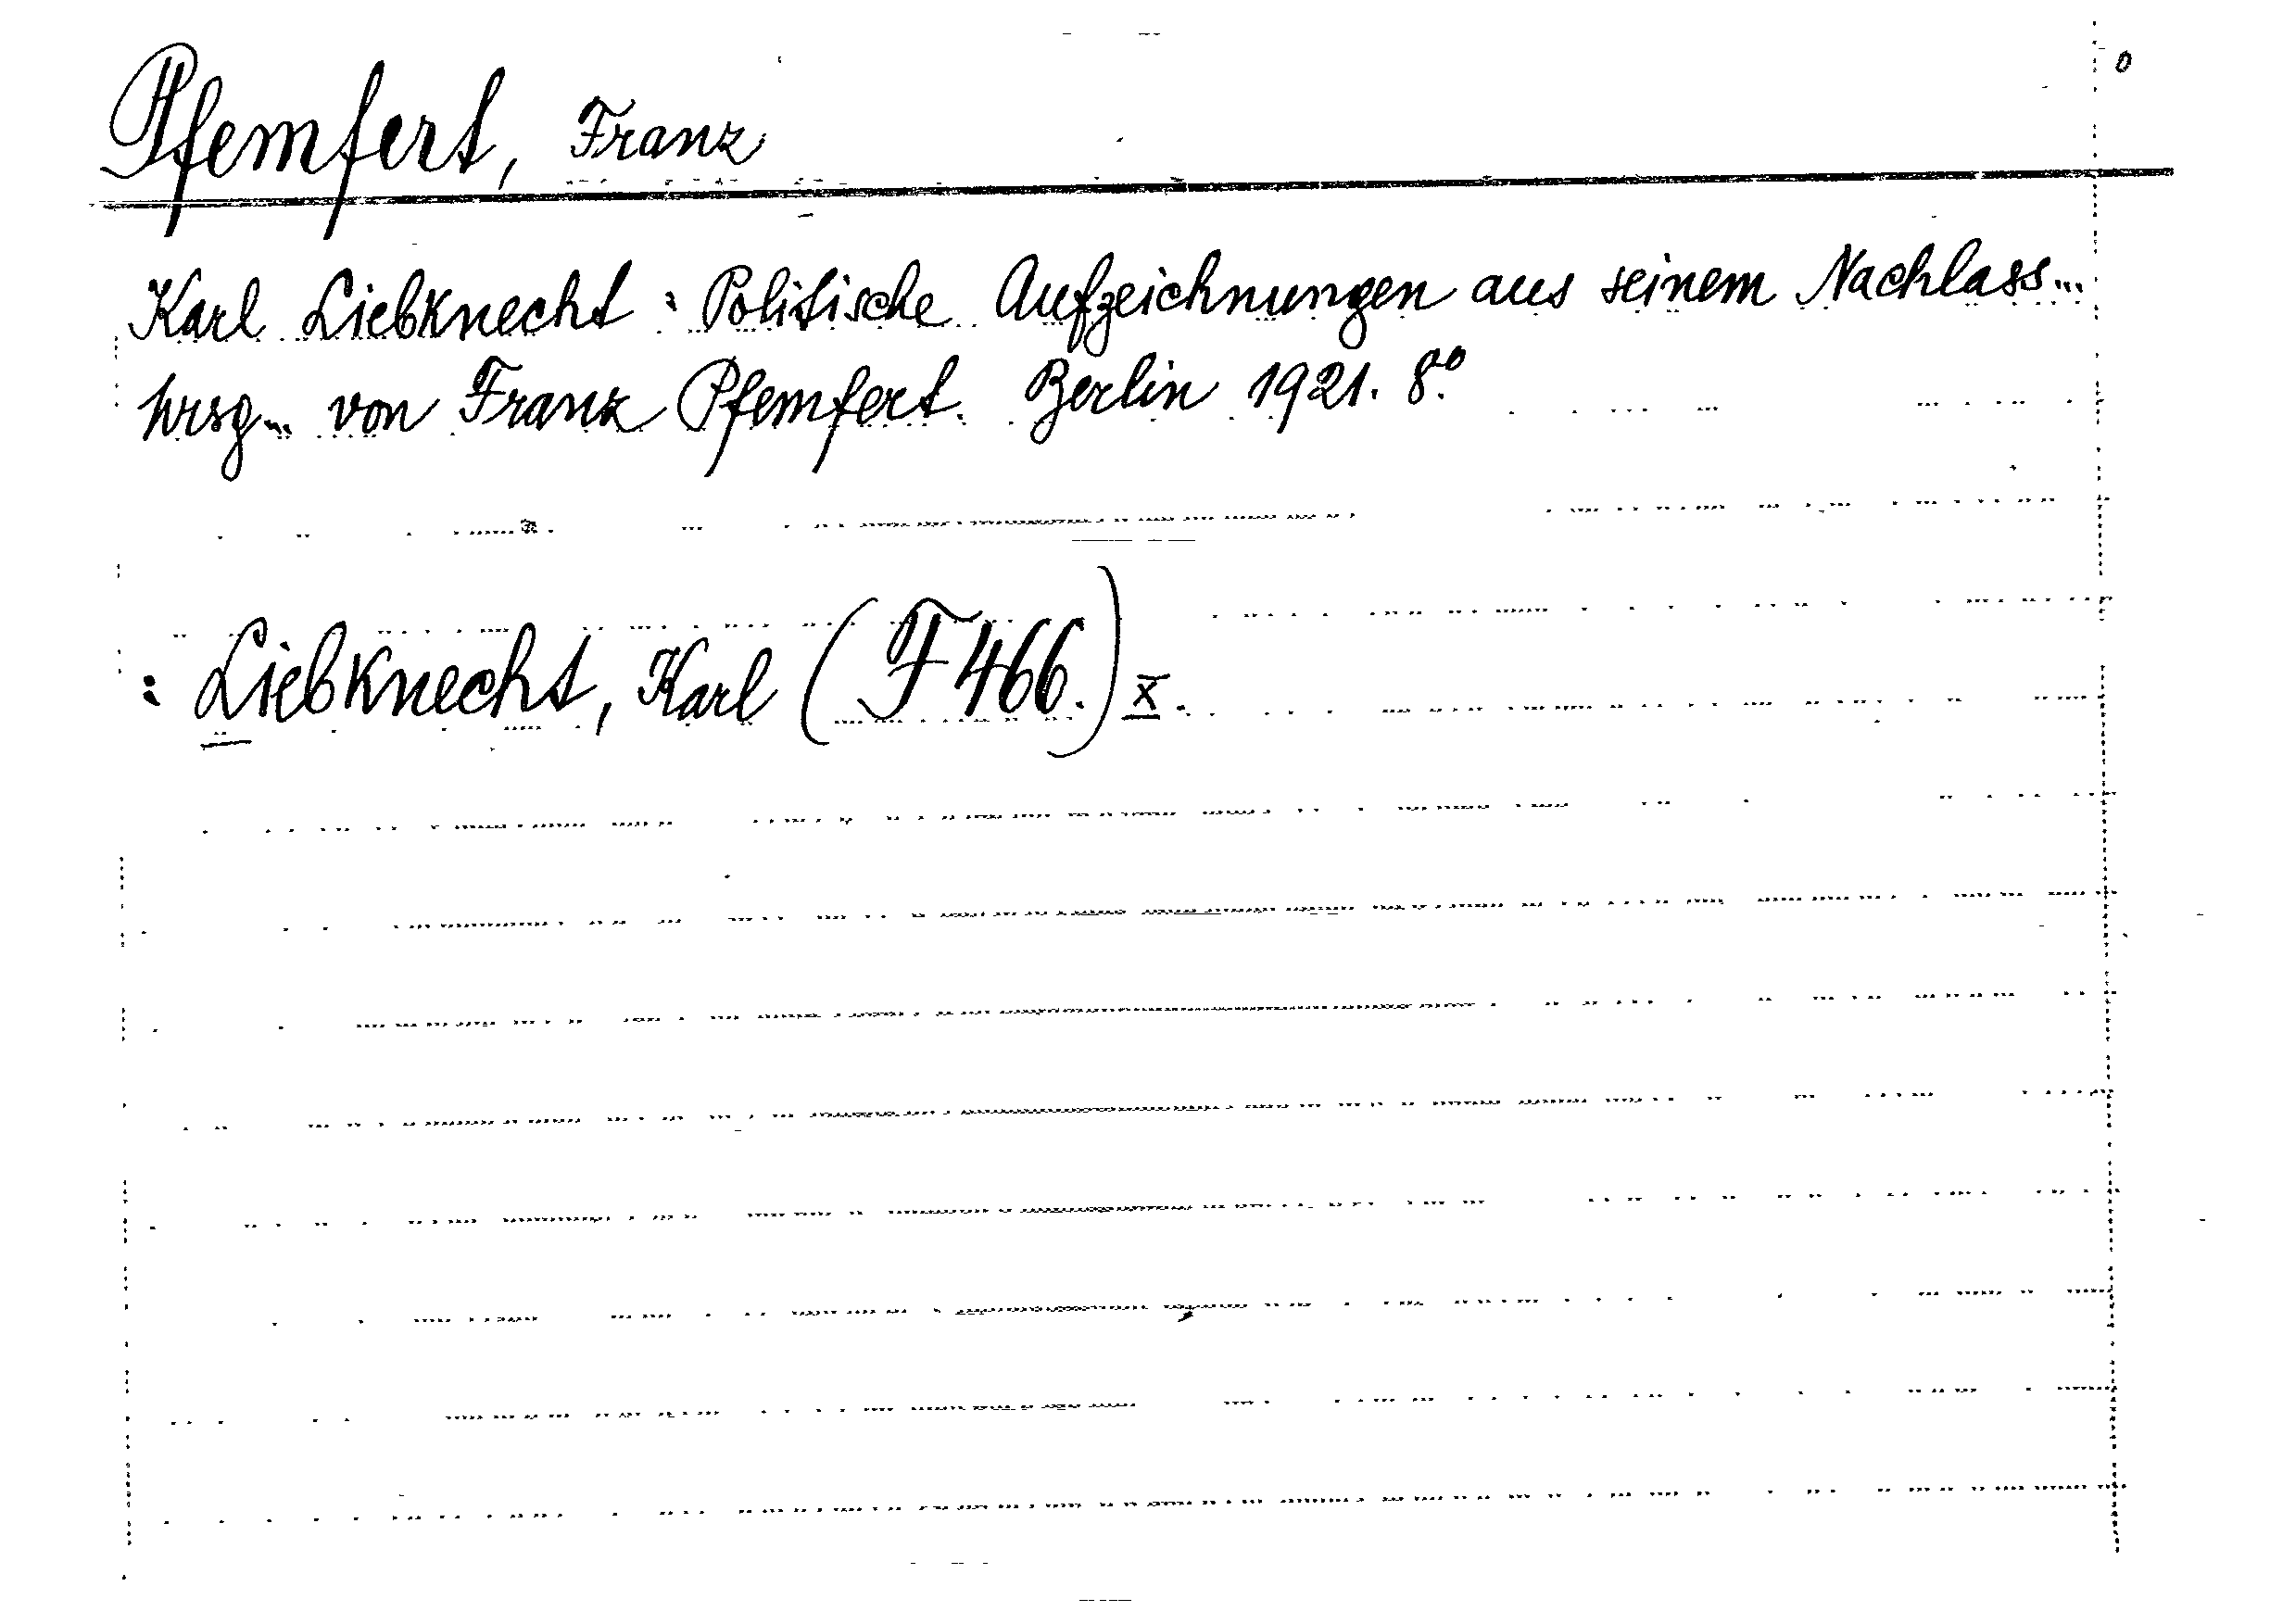 Pfemfert, Franz
Karl Liebknecht: Politische Aufzeichnungen aus seinem Nachlass...
hrsg... von Franz Pfemfert. Berlin 1921. 8º.
: Liebknecht, Karl (F 466.) x.